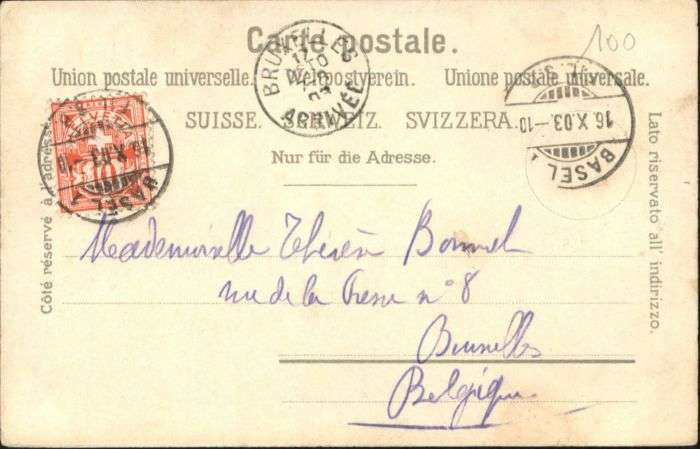 100
Carte postale.
Union postale universelle. Weltpostverein. Unione postale universale.
SUISSE. SCHWEIZ. SVIZZERA.
Nur für die Adresse.
Côté réservé à l'adresse.
Lato riservato all' indirizzo.
BRUXELLES
17
OCTO
03
ARRIVÉE
BASEL 1
16.X.03.-10
HELVETIA
10
BASEL 1
16.X.03.-10
Mademoiselle Thérèse Bonnel
rue de la n° 8
Bruxelles
Belgique